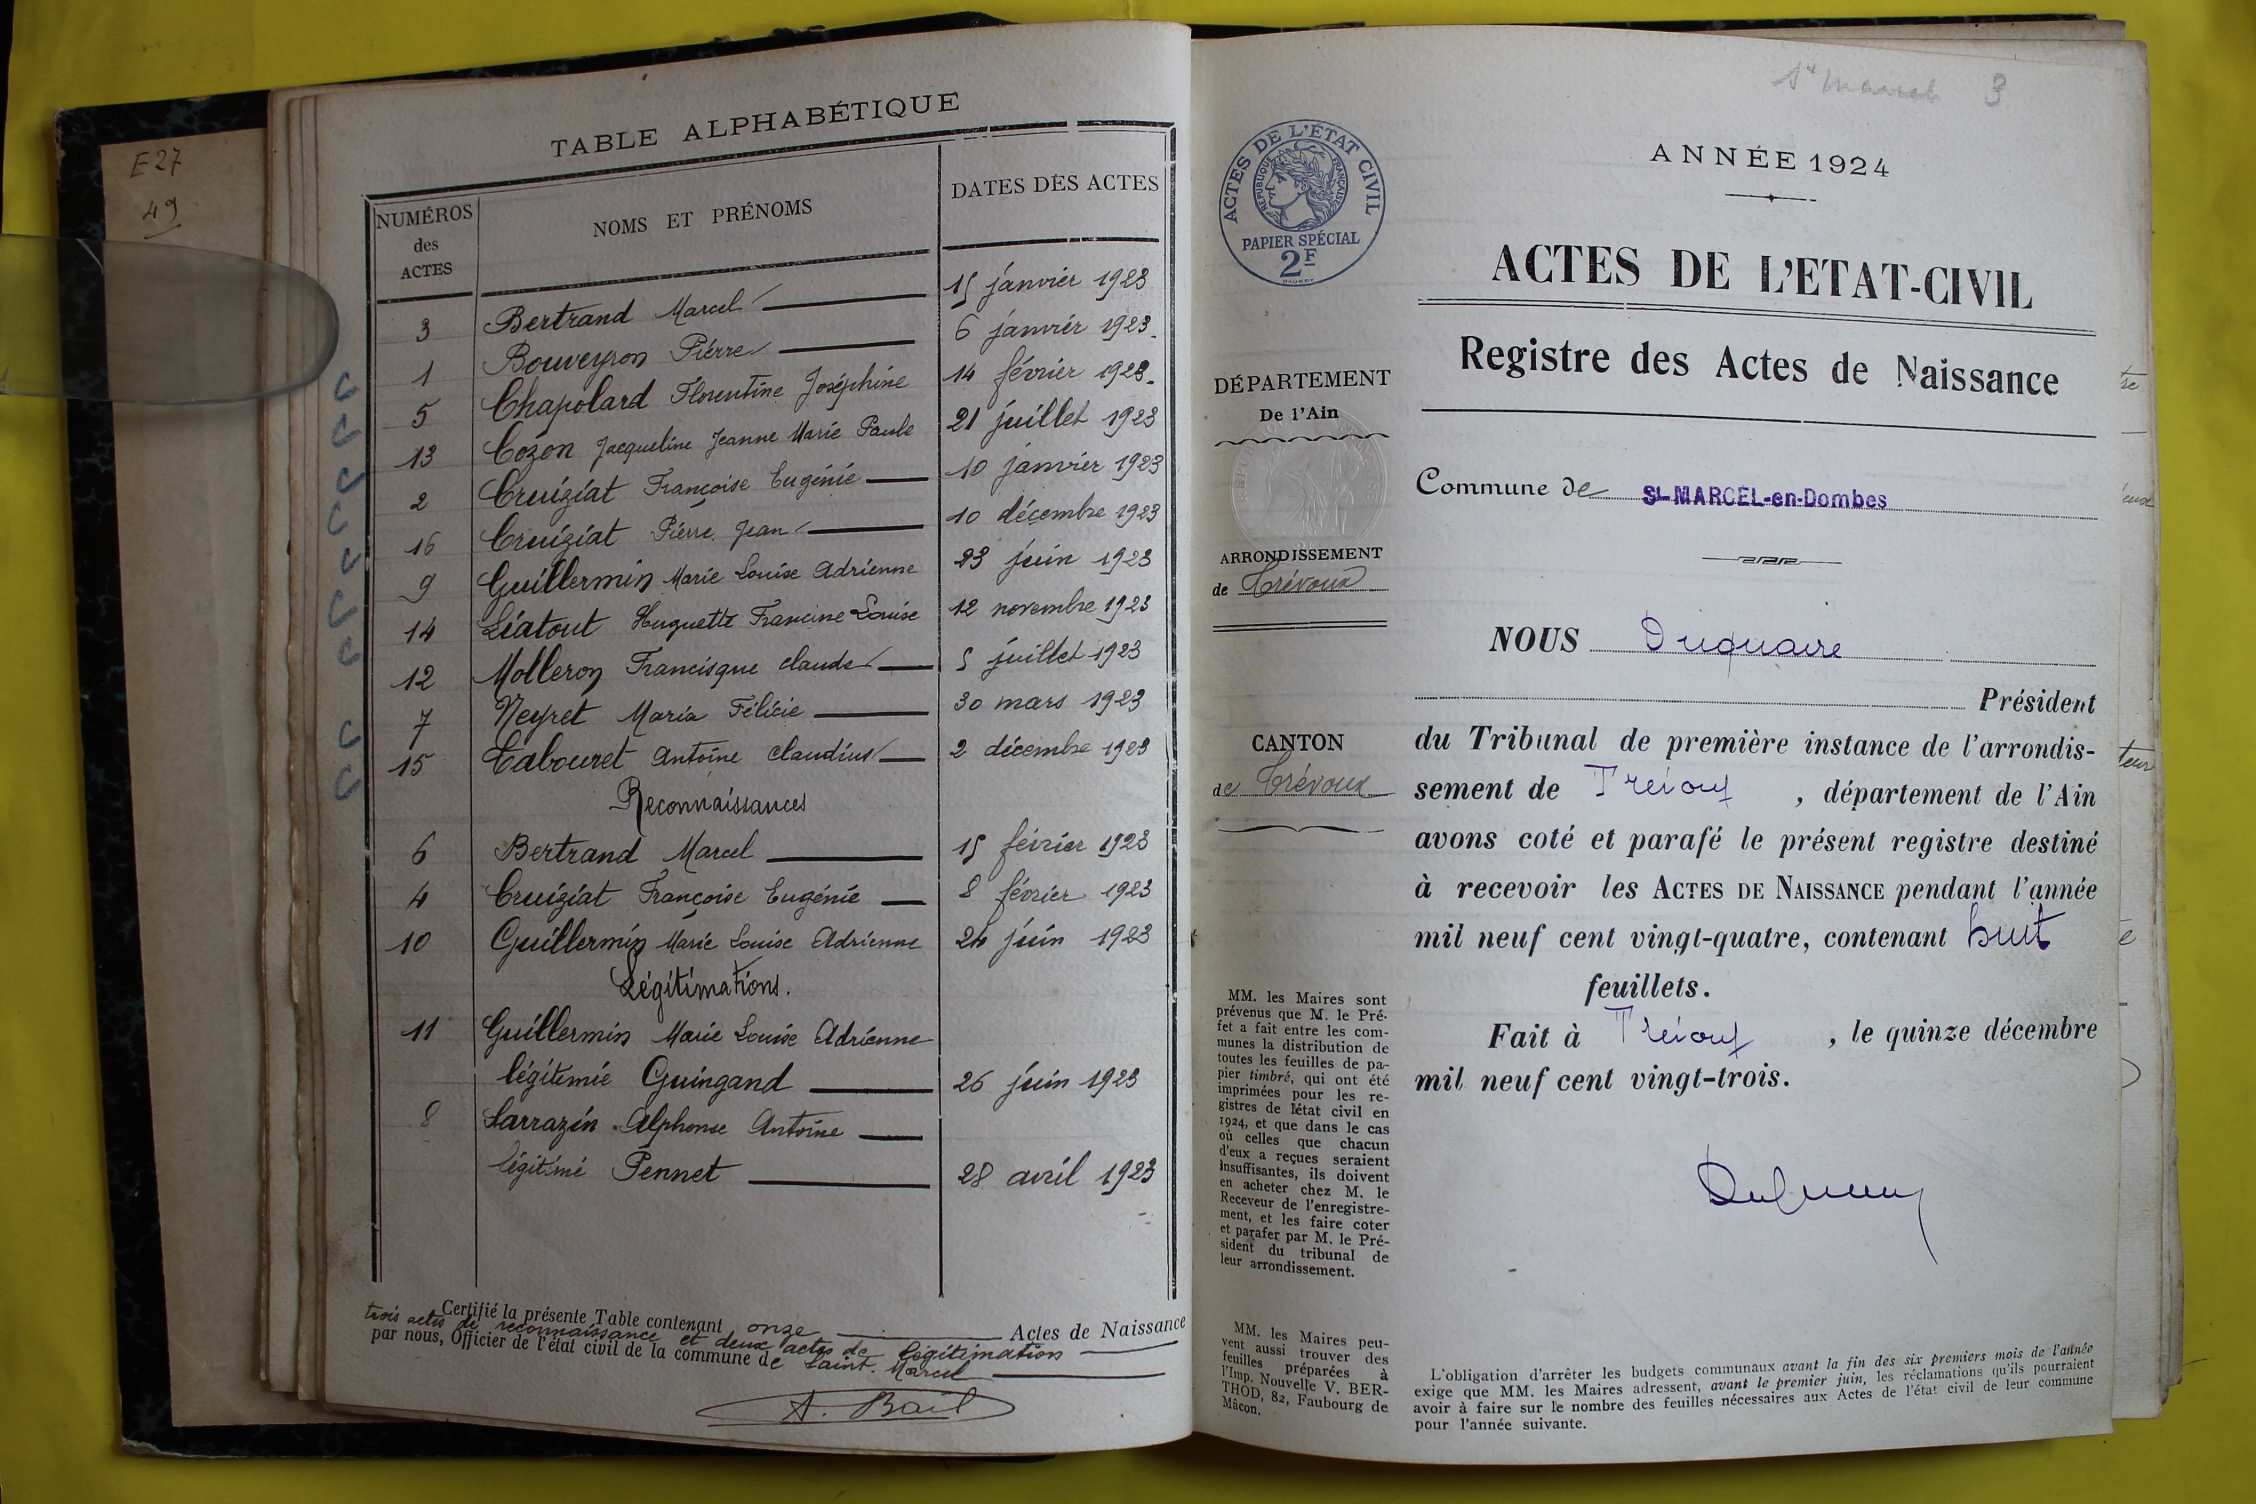 E 27
49
TABLE ALPHABÉTIQUE
NUMÉROS des ACTES
NOMS ET PRÉNOMS
DATES DES ACTES
3 Bertrand Marcel 15 janvier 1923
1 Bouveyron Pierre 6 janvier 1923
5 Chapolard Florentine Joséphine 14 février 1923
13 Cozon Jacqueline Jeanne Marie Paule 21 juillet 1923
2 Cruiziat Françoise Eugénie 10 janvier 1923
16 Cruiziat Pierre Jean 10 décembre 1923
9 Guillermin Marie Louise Adrienne 23 juin 1923
14 Liatout Huguette Francine Louise 12 novembre 1923
12 Molleron Francisque Claude 5 juillet 1923
7 Neyret Maria Félicie 30 mars 1923
15 Tabouret Antoine Claudius 2 décembre 1923
Reconnaissances
6 Bertrand Marcel 15 février 1923
4 Cruiziat Françoise Eugénie 8 février 1923
10 Guillermin Marie Louise Adrienne 24 juin 1923
Légitimations.
11 Guillermin Marie Louise Adrienne
légitimée Guingand 26 juin 1923
8 Sarrazin Alphonse Antoine
légitimé Pennet 28 avril 1923
Certifié la présente Table contenant onze Actes de Naissance
trois actes de reconnaissance et deux actes de légitimation
par nous, Officier de l'état civil de la commune de Saint-Marcel
A. Bail
St Marcel 3
ACTES DE L'ETAT CIVIL
REPUBLIQUE FRANÇAISE
PAPIER SPÉCIAL
2F
ANNÉE 1924
ACTES DE L'ETAT-CIVIL
Registre des Actes de Naissance
DÉPARTEMENT
De l'Ain
Commune de St-MARCEL-en-Dombes
ARRONDISSEMENT
de Trévoux
CANTON
de Trévoux
NOUS Duquaire
Président
du Tribunal de première instance de l'arrondis-
sement de Trévoux, département de l'Ain
avons coté et parafé le présent registre destiné
à recevoir les ACTES DE NAISSANCE pendant l'année
mil neuf cent vingt-quatre, contenant huit
feuillets.
Fait à Trévoux, le quinze décembre
mil neuf cent vingt-trois.
MM. les Maires sont
prévenus que M. le Pré-
fet a fait entre les com-
munes la distribution de
toutes les feuilles de pa-
pier timbré, qui ont été
imprimées pour les re-
gistres de l'état civil en
1924, et que dans le cas
où celles que chacun
d'eux a reçues seraient
insuffisantes, ils doivent
en acheter chez M. le
Receveur de l'enregistre-
ment, et les faire coter
et parafer par M. le Pré-
sident du tribunal de
leur arrondissement.
MM. les Maires peu-
vent aussi trouver des
feuilles préparées à
l'Imp. Nouvelle V. BER-
THOD, 82, Faubourg de
Mâcon.
L'obligation d'arrêter les budgets communaux avant la fin des six premiers mois de l'année
exige que MM. les Maires adressent, avant le premier juin, les réclamations qu'ils pourraient
avoir à faire sur le nombre des feuilles nécessaires aux Actes de l'état civil de leur commune
pour l'année suivante.